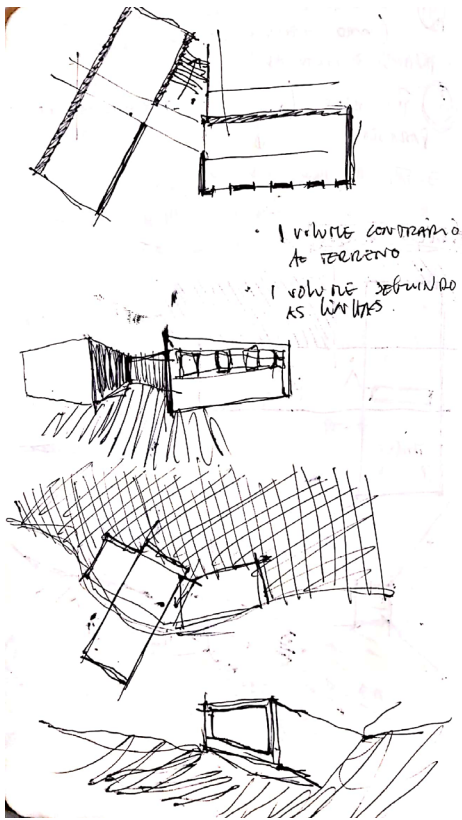 . 1 VOLUME CONTRÁRIO
AO TERRENO
1 VOLUME SEGUINDO
AS LINHAS.